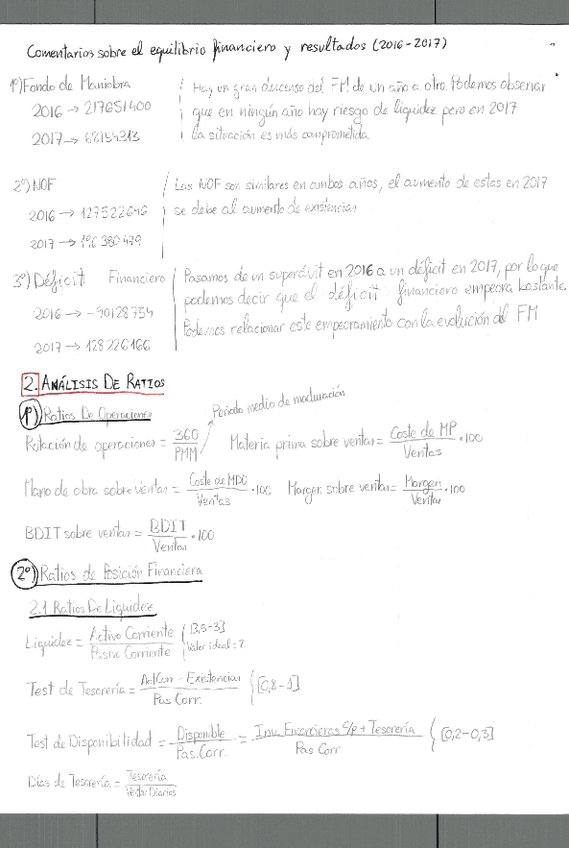 Comentarios sobre el equilibrio financiero y resultados (2016-2017)
1º) Fondo de Maniobra
2016 → 217651400
2017 → 68154313
Hay un gran descenso del FM de un año a otro. Podemos observar
que en ningún año hay riesgo de liquidez pero en 2017
la situación es más comprometida
2º) NOF
2016 → 127522646
2017 → 196380479
Las NOF son similares en ambos años, el aumento de estas en 2017
se debe al aumento de existencias
3º) Déficit Financiero
2016 → -90128754
2017 → 128226166
Pasamos de un superávit en 2016 a un déficit en 2017, por lo que
podemos decir que el déficit financiero empeora bastante.
Podemos relacionar este empeoramiento con la evolución del FM
2. ANÁLISIS DE RATIOS
1º) Ratios De Operaciones
Periodo medio de maduración
Rotación de operaciones = 360 / PMM
Materia prima sobre ventas = Coste de MP / Ventas · 100
Mano de obra sobre ventas = Coste de MDO / Ventas · 100
Margen sobre ventas = Margen / Ventas · 100
BDIT sobre ventas = BDIT / Ventas · 100
2º) Ratios de Posición Financiera
2.1 Ratios De Liquidez
Liquidez = Activo Corriente / Pasivo Corriente
Valor ideal = 2
Test de Tesorería = Act Corr - Existencias / Pas Corr. { [0,8-1]
Test de Disponibilidad = Disponible / Pas. Corr. = Inv. Financieras C/p + Tesorería / Pas Corr { [0,2-0,3]
Días de Tesorería = Tesorería / Ventas Diarias